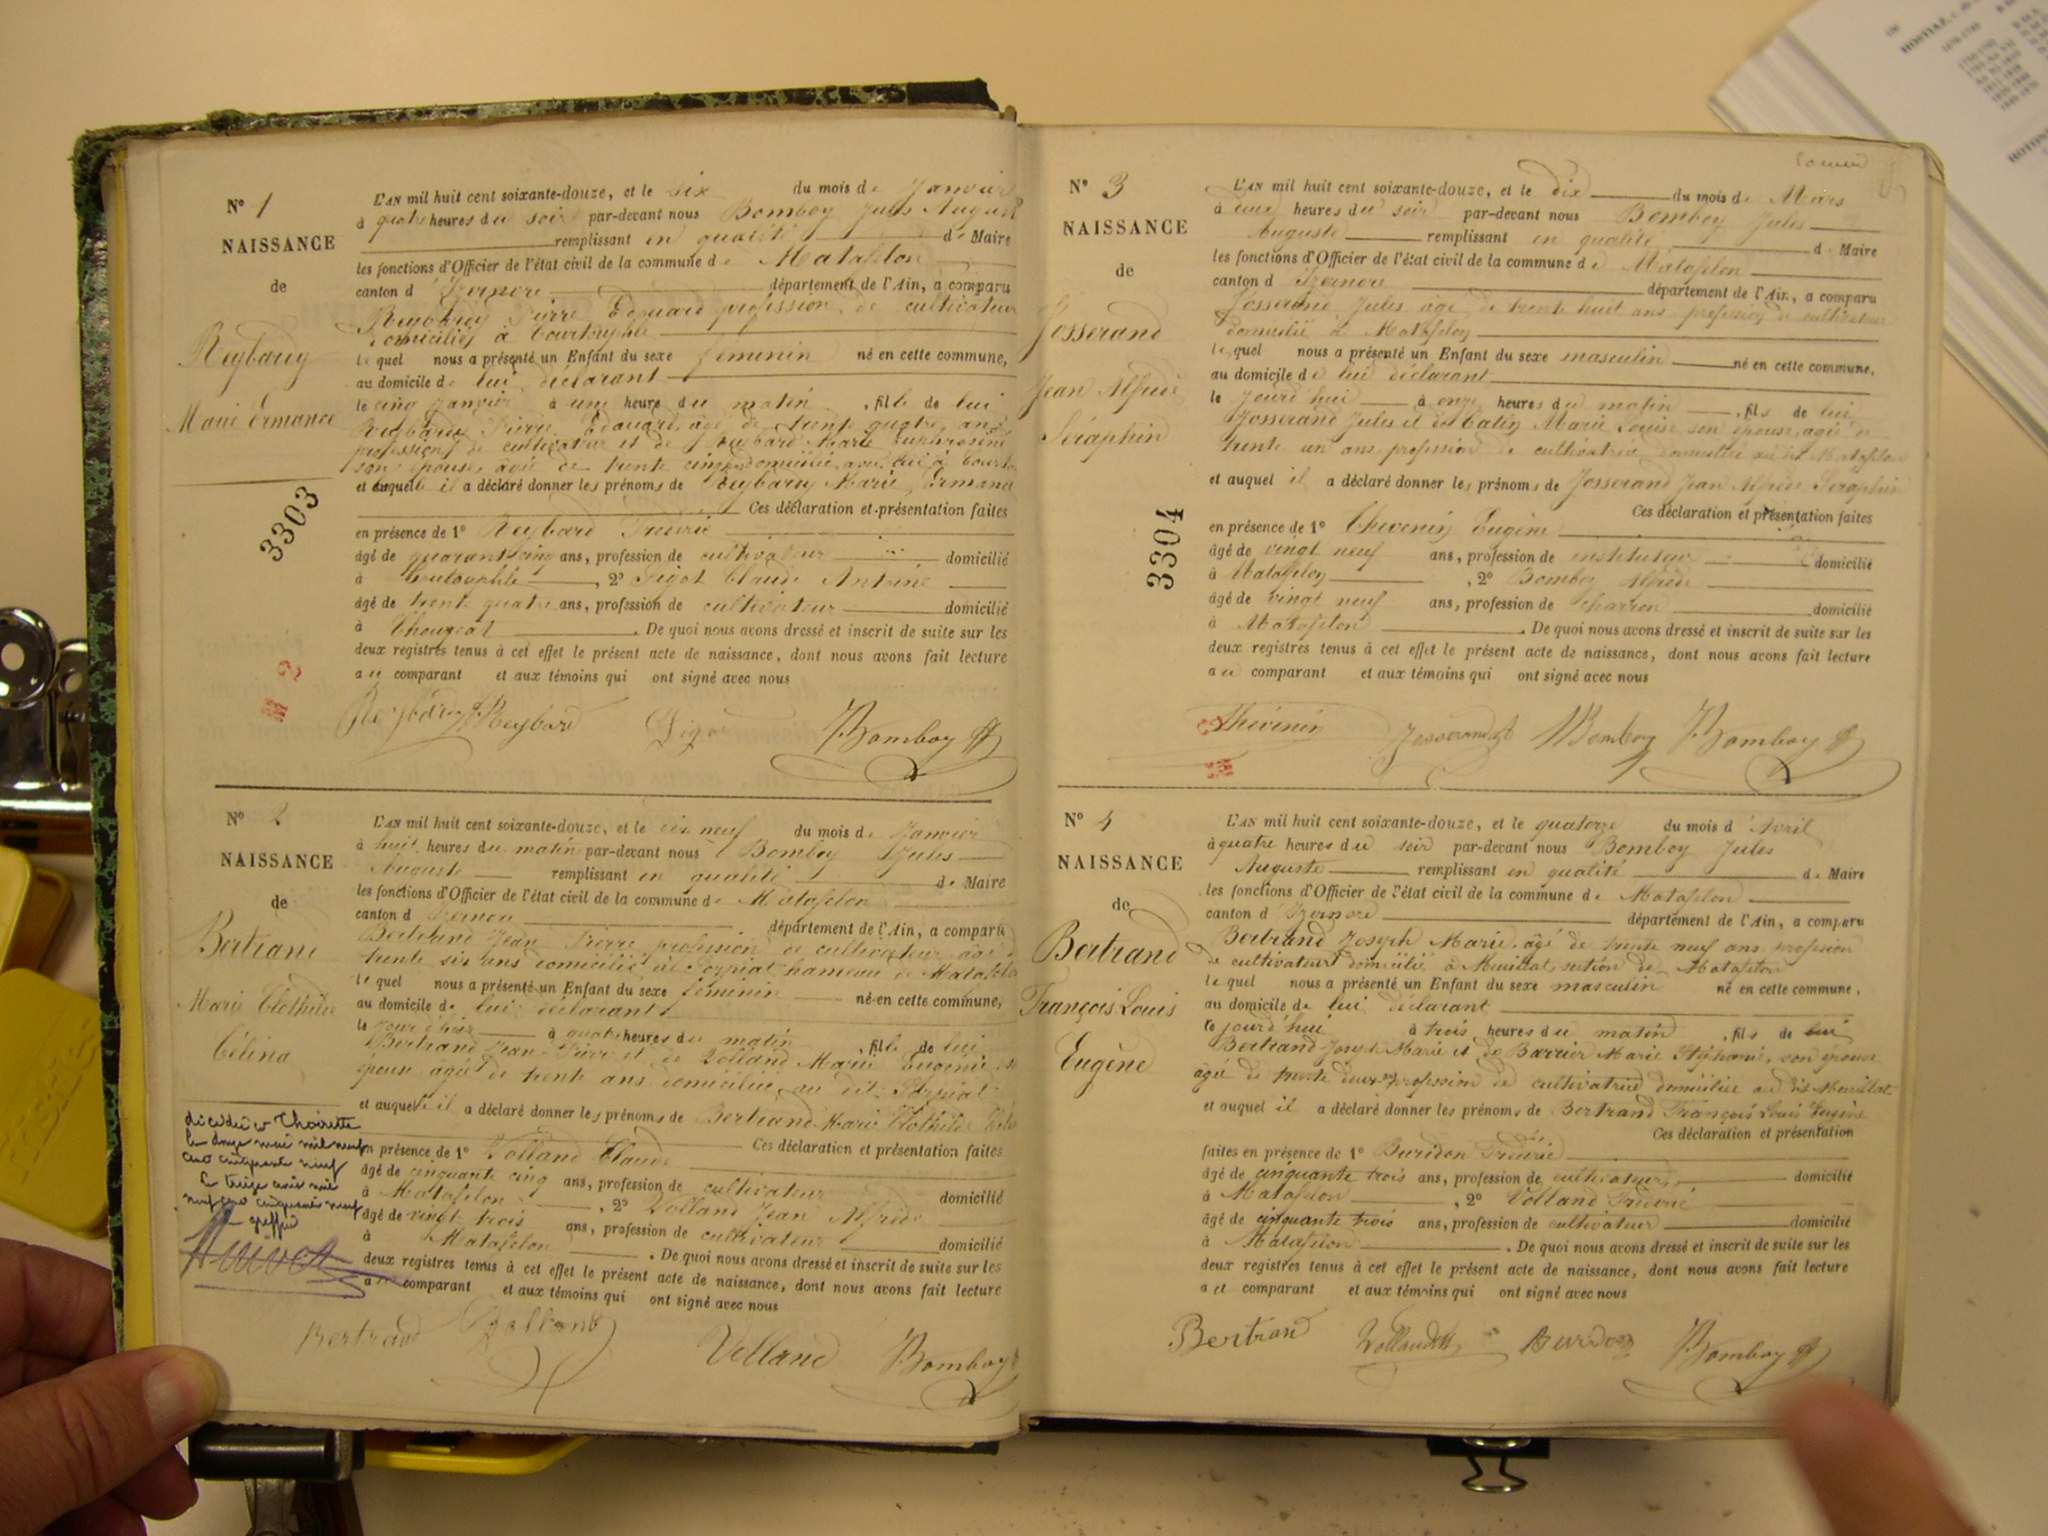 N° 1
NAISSANCE
de
Reybaud
Marie Ermance
3303
L'AN mil huit cent soixante-douze, et le six du mois de Janvier
à quatre heures du soir par-devant nous Bomboy Jules Auguste
remplissant en qualité de Maire
les fonctions d'Officier de l'état civil de la commune de Matafelon
canton d'Izernore département de l'Ain, a comparu
Pierre Edouard profession de cultivateur
domicilié à Courtouphle
lequel nous a présenté un Enfant du sexe féminin né en cette commune,
au domicile de lui déclarant
le cinq Janvier à une heure du matin, fille de lui
Pierre Edouard âgé de trente quatre ans
profession de cultivateur et de Marie
son épouse, âgée de trente cinq domiciliée avec lui à
et auquel il a déclaré donner les prénoms de Marie Ermance
Ces déclaration et présentation faites
en présence de 1° Reybard
âgé de quarante cinq ans, profession de cultivateur domicilié
à Courtouphle, 2° Claude Antoine
âgé de trente quatre ans, profession de cultivateur domicilié
à Thougeat. De quoi nous avons dressé et inscrit de suite sur les
deux registres tenus à cet effet le présent acte de naissance, dont nous avons fait lecture
au comparant et aux témoins qui ont signé avec nous
Reybard Bomboy
N° 2
NAISSANCE
de
Bertrand
Marie Clothilde
Célina
décédée à Thoirette
le douze mai mil neuf
cent cinquante neuf
Le treize mai mil
neuf cent cinquante neuf
Le greffier
L'AN mil huit cent soixante-douze, et le dix neuf du mois de Janvier
à huit heures du matin par-devant nous Bomboy Jules
Auguste remplissant en qualité de Maire
les fonctions d'Officier de l'état civil de la commune de Matafelon
canton d'Izernore département de l'Ain, a comparu
Bertrand Jean Pierre profession de cultivateur âgé de
trente six ans domicilié à hameau de Matafelon
lequel nous a présenté un Enfant du sexe féminin né en cette commune,
au domicile de lui déclarant
le jour d'hier à quatre heures du matin, fille de lui
Bertrand Jean Pierre et de Volland Marie Eugénie
épouse, âgée de trente ans domiciliée au dit
et auquel il a déclaré donner les prénoms de Bertrand Marie Clothilde
Ces déclaration et présentation faites
en présence de 1° Volland Claude
âgé de cinquante cinq ans, profession de cultivateur domicilié
à Matafelon, 2° Volland Jean Alfrède
âgé de vingt trois ans, profession de cultivateur domicilié
à Matafelon. De quoi nous avons dressé et inscrit de suite sur les
deux registres tenus à cet effet le présent acte de naissance, dont nous avons fait lecture
au comparant et aux témoins qui ont signé avec nous
Bertrand Volland Volland Bomboy
N° 3
NAISSANCE
de
Josserand
Jean Alfrède
Séraphin
3304
L'AN mil huit cent soixante-douze, et le dix du mois de Mars
à heures du soir par-devant nous Bomboy Jules
Auguste remplissant en qualité de Maire
les fonctions d'Officier de l'état civil de la commune de Matafelon
canton d'Izernore département de l'Ain, a comparu
Josserand Jules âgé de trente huit ans profession de cultivateur
domicilié à Matafelon
lequel nous a présenté un Enfant du sexe masculin né en cette commune,
au domicile de lui déclarant
le jourd'hui à onze heures du matin, fils de lui
Josserand Jules et de Marie Louise son épouse, âgée de
trente un ans profession de cultivatrice domiciliée au dit Matafelon
et auquel il a déclaré donner les prénoms de Josserand Jean Alfrède Séraphin
Ces déclaration et présentation faites
en présence de 1° Thévenin Eugène
âgé de vingt neuf ans, profession de instituteur domicilié
à Matafelon, 2° Bomboy Alfrède
âgé de vingt neuf ans, profession de charron domicilié
à Matafelon. De quoi nous avons dressé et inscrit de suite sur les
deux registres tenus à cet effet le présent acte de naissance, dont nous avons fait lecture
au comparant et aux témoins qui ont signé avec nous
Thévenin Josserand Bomboy Bomboy
N° 4
NAISSANCE
de
Bertrand
François Louis
Eugène
L'AN mil huit cent soixante-douze, et le quatorze du mois d'Avril
à quatre heures du soir par-devant nous Bomboy Jules
Auguste remplissant en qualité de Maire
les fonctions d'Officier de l'état civil de la commune de Matafelon
canton d'Izernore département de l'Ain, a comparu
Bertrand Joseph Marie, âgé de trente neuf ans profession
de cultivateur domicilié à Meuillat section de Matafelon
lequel nous a présenté un Enfant du sexe masculin né en cette commune,
au domicile de lui déclarant
le jourd'hui à trois heures du matin, fils de lui
Bertrand Joseph Marie et de Barrier Marie Stéphanie, son épouse
âgée de trente deux ans profession de cultivatrice domiciliée au dit Meuillat
et auquel il a déclaré donner les prénoms de Bertrand François Louis Eugène
Ces déclaration et présentation
faites en présence de 1° Buridon Frédéric
âgé de cinquante trois ans, profession de cultivateur domicilié
à Matafelon, 2° Volland Frédéric
âgé de cinquante trois ans, profession de cultivateur domicilié
à Matafelon. De quoi nous avons dressé et inscrit de suite sur les
deux registres tenus à cet effet le présent acte de naissance, dont nous avons fait lecture
au comparant et aux témoins qui ont signé avec nous
Bertrand Volland Buridon Bomboy